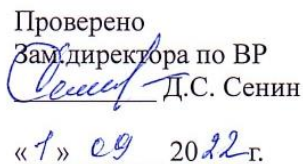 Проверено
Зам.директора по ВР
Д.С. Сенин
« 1 » 09 2022г.